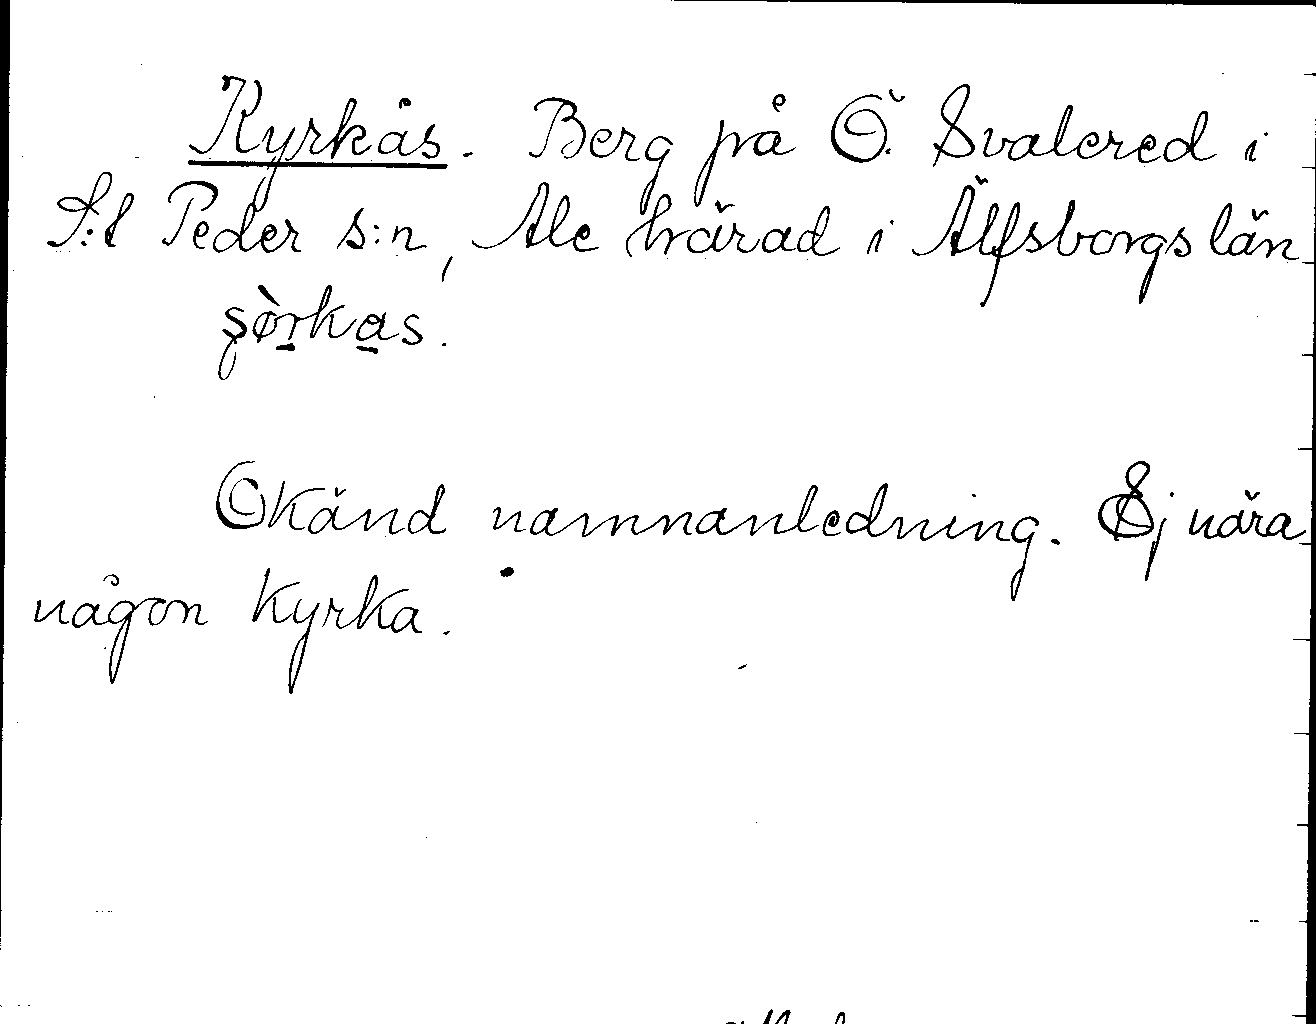 Kyrkås. Berg på Ö. Svalered i
S:t Peder s:n, Ale härad i Älfsborgs län
şø̀rkas.
Okänd namnanledning. Ej nära
någon kyrka.